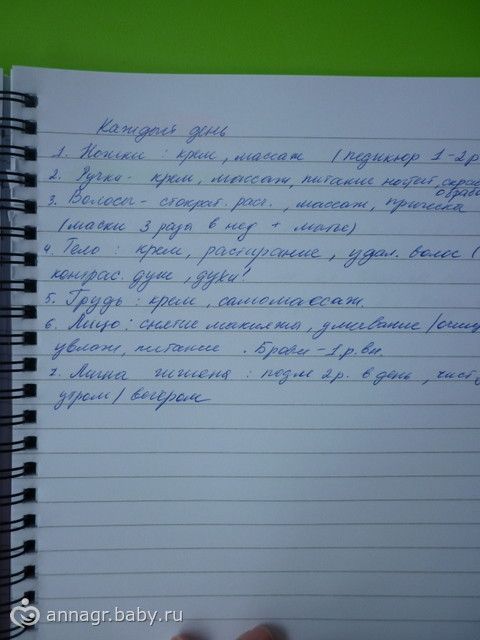 Каждый день
1. Ножки: крем, массаж (педикюр 1-2р
2. Ручка- крем, массаж, питание ногтей,
3. Волосы- стократ. расч., массаж, прическа
(маски 3 разы в нед + мытье)
4. Тело: крем, растирание, удал. волос (
контрас. душ, духи!
5. Грудь: крем, самомассаж.
6. Лицо: снятие макияжа, умывание/очищ
увлаж, питание. Брови-1р.вн.
7. Лична гигиена: подм 2р. в день, чист
утром/вечером
annagr.baby.ru